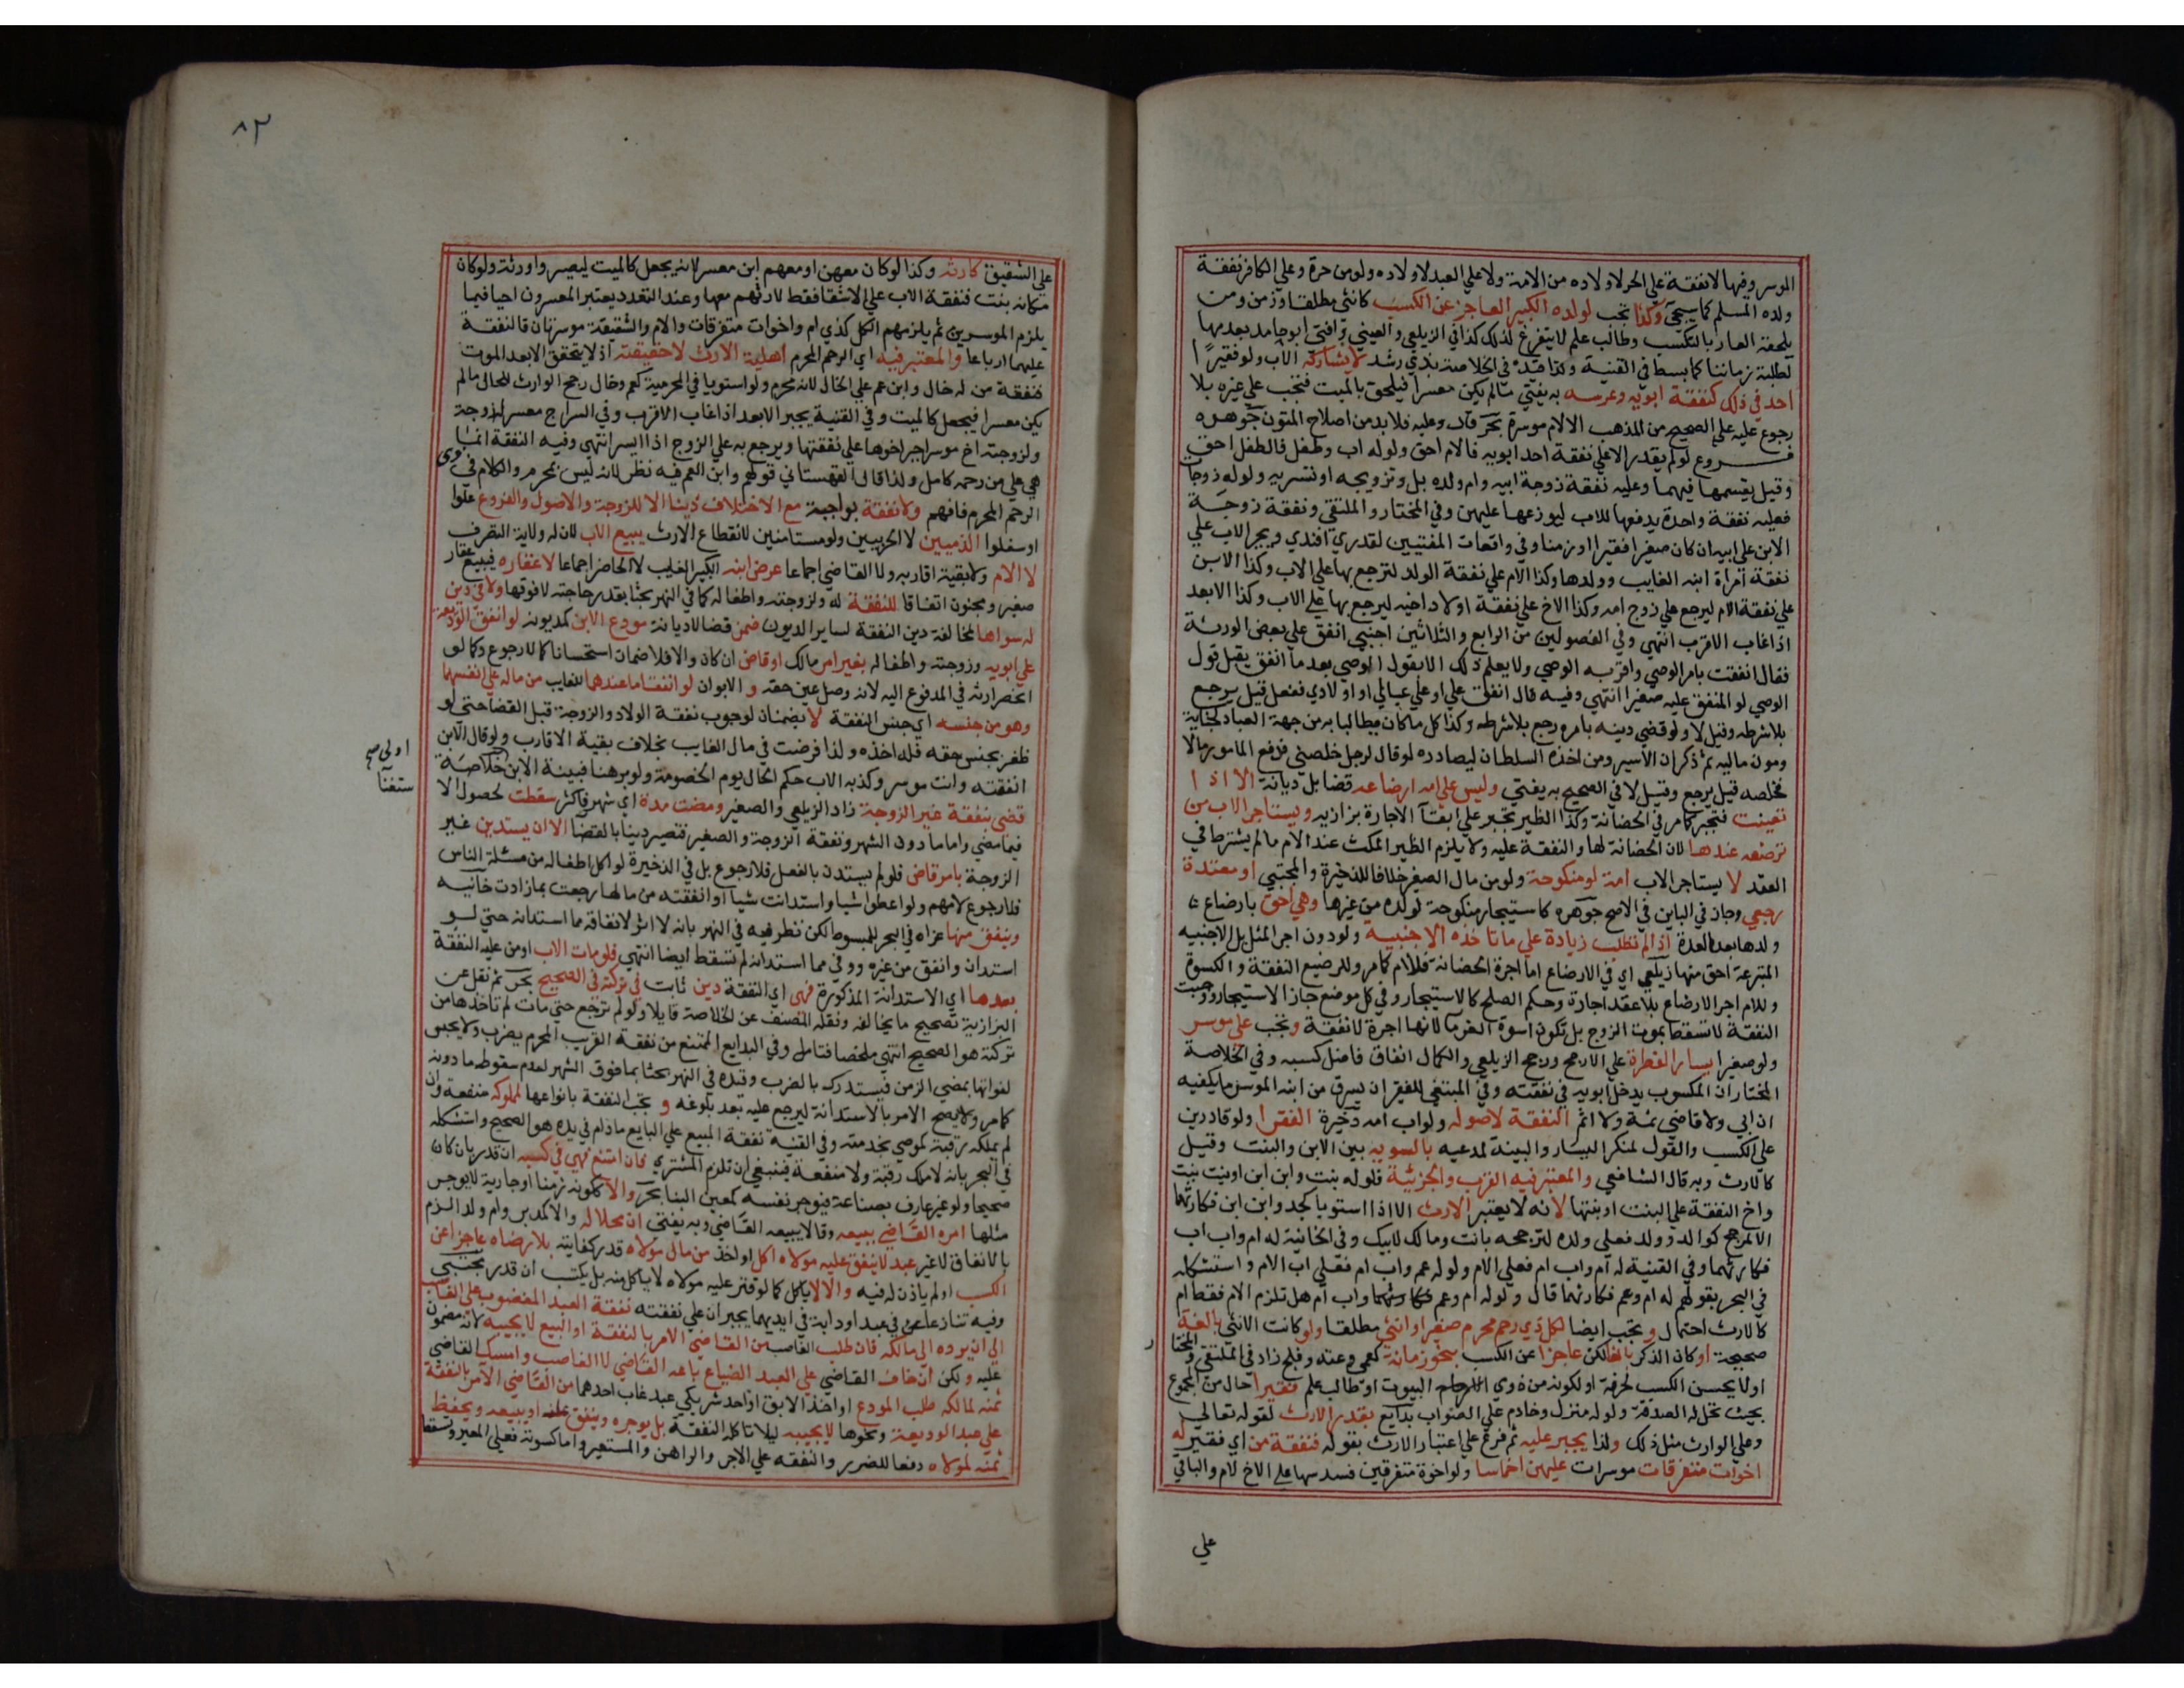 الموسر وفيها لا نفقة علي الحر لاولاده من الامة ولا علي العبد لاولاده ولو من حرة وعلي الكافر نفقة
ولده المسلم كما سيجي وكذا تجب لولده الكبير العاجز عن الكسب كانثي مطلقا وزمن ومن
يلحقه العار بالتكسب وطالب علم لا يتفرغ لذلك كذا في الزيلعي والعيني وافتي ابو حامد بعدمها
لطلبة زماننا كما بسط في القنية وكذا قيده في الخلاصة بذي رشد لا يشاركه الاب ولو فقيرا
احد في ذلك كنفقة ابويه وعرسه به يفتي مالم يكن معسرا فيلحق بالميت فتجب علي غيره بلا
رجوع عليه علي الصحيح من المذهب الا لام موسرة بحر قال وعليه فلا بد من اصلاح المتون جوهره
فروع لو لم يقدر الا علي نفقة احد ابويه فالام احق ولو له اب وطفل فالطفل احق
وقيل يقسمها فيهما وعليه نفقة زوجة ابيه وام ولده بل وتزويجه او تسريه ولو له زوجات
فعليه نفقة واحدة يدفعها للاب ليوزعها عليهن وفي المختار والملتقي ونفقة زوجة
الابن علي ابيه ان كان صغيرا فقيرا او زمنا وفي واقعات المفتيين لقدري افندي ويجبر الاب علي
نفقة امراة ابنه الغايب وولدها وكذا الام علي نفقة الولد لترجع بها علي الاب وكذا الابن
علي نفقة الام ليرجع علي زوج امه وكذا الاخ علي نفقة اولاد اخيه ليرجع بها علي الاب وكذا الابعد
اذا غاب الاقرب انتهي وفي الفصولين من الرابع والثلاثين اجنبي انفق علي بعض الورثة
فقال انفقت بامر الوصي واقر به الوصي ولا يعلم ذلك الا بقول الوصي بعد ما انفق يقبل قول
الوصي لو المنفق عليه صغيرا انتهي وفيه قال انفق علي او علي عيالي او اولادي ففعل قيل يرجع
بلا شرطه وقيل لا ولو قضي دينه بامره رجع بلا شرطه وكذا كل ما كان مطالبا به من جهة العباد كجناية
ومون مالية ثم ذكر ان الاسير ومن اخذه السلطان ليصادره لو قال لرجل خلصني فدفع المامور مالا
فخلصه قيل يرجع وقيل لا في الصحيح به يفتي وليس علي امه ارضاعه قضا بل ديانة الا اذا
تعينت فتجبر كما مر في الحضانة وكذا الظير تجبر علي ابقآ الاجارة بزازيه ويستاجر الاب من
ترضعه عندها لان الحضانة لها والنفقة عليه ولا يلزم الظير المكث عند الام ما لم يشترط في
العقد لا يستاجر الاب امه لو منكوحة ولو من مال الصغير خلافا للذخيرة والمجتبي او معتدة
رجعي وجاز في الباين في الاصح جوهره كاستيجار منكوحة لولده من غيرها وهي احق بارضاع
ولدها بعد العدة اذا لم تطلب زيادة علي ما تاخذه الاجنبية ولو دون اجر المثل بل الاجنبية
المتبرعة احق منها زيلعي اي في الارضاع اما اجرة الحضانة فللام كما مر وللرضيع النفقة والكسوة
وللام اجر الارضاع بلا عقد اجارة وحكم الصلح كالاستيجار وفي كل موضع جاز الاستيجار ووجبت
النفقة لا تسقط بموت الزوج بل تكون اسوة الغرمآ لانها اجرة لا نفقة وتجب علي موسر
ولو صغيرا يسار الفطرة علي الارجح ورجح الزيلعي والكمال انفاق فاضل كسبه وفي الخلاصة
المختار ان المكسوب يدخل ابويه في نفقته وفي المبتغي للفقير ان يسرق من ابنه الموسر ما يكفيه
ان ابي ولا قاضي ثمة ولا اثم النفقة لاصوله ولو اب امه ذخيرة الفقرا ولو قادرين
علي الكسب والقول لمنكر اليسار والبينة لمدعيه بالسوية بين الابن والبنت وقيل
كالارث وبه قال الشافعي والمعتبر فيه القرب والجزئية فلو له بنت وابن ابن او بنت بنت
واخ النفقة علي البنت او بنتها لانه لا يعتبر الارث الا اذا استويا كجد وابن ابن فكارثهما
الا لمرجح كوالد وولد فعلي ولده لترجحه بانت ومالك لابيك وفي الخانية له ام واب اب
فكارثهما وفي القنية له ام واب ام فعلي الام ولو له عم واب ام فعلي اب الام واستشكله
في البحر بقولهم له ام وعم فكارثهما قال ولو له ام وعم واب ام هل تلزم الام فقط ام
كالارث احتمال وتجب ايضا لكل ذي رحم محرم صغير او انثي مطلقا ولو كانت الانثي بالغة
صحيحة او كان الذكر بالغا لكن عاجزا عن الكسب بنحو زمانة كعمي وعته وفلج زاد في الملتقي والمختار
او لا يحسن الكسب لحرفة او لكونه من ذوي البيوت او طالب علم فقيرا حال من المجموع
بحيث تحل له الصدقة ولو له منزل وخادم علي الصواب بدايع بقدر الارث لقوله تعالي
وعلي الوارث مثل ذلك ولذا يجبر عليه ثم فرع علي اعتبار الارث بقوله فنفقة من اي فقير له
اخوات متفرقات موسرات عليهن اخماسا ولو اخوة متفرقين فسدسها علي الاخ لام والباقي
علي
٨٢
علي الشقيق كارثه وكذا لو كان معهن او معهم ابن معسر لانه يجعل كالميت ليصيروا ورثة ولو كان
مكانه بنت فنفقة الاب علي الاشقا فقط لارثهم معها وعند التعدد يعتبر المعسرون احيا فيما
يلزم الموسرين ثم يلزمهم الكل كذي ام واخوات متفرقات والام والشقيقة موسرتان فالنفقة
عليهما ارباعا والمعتبر فيه اي الرحم المحرم اهلية الارث لا حقيقته اذ لا يتحقق الا بعد الموت
فنفقة من له خال وابن عم علي الخال لانه محرم ولو استويا في المحرمية كعم وخال رجح الوارث للحال مالم
يكن معسرا فيجعل كالميت وفي القنية يجبر الابعد اذا غاب الاقرب وفي السراج معسر له زوجة
ولزوجته اخ موسر اجبر اخوها علي نفقتها ويرجع به علي الزوج اذا ايسر انتهي وفيه النفقة انما
هي علي من رحمه كامل ولذا قال القهستاني قولهم وابن العم فيه نظر لانه ليس بمحرم والكلام في ذوي
الرحم المحرم فافهم ولا نفقة بواجبة مع الاختلاف دينا الا للزوجة والاصول والفروع علوا
او سفلوا الذميين لا الحربيين ولو مستامنين لانقطاع الارث يبيع الاب لان له ولاية التصرف
لا الام ولا بقية اقاربه ولا القاضي اجماعا عرض ابنه الكبير الغايب لا الحاضر اجماعا لا عقاره فيبيع عقار
صغير ومجنون اتفاقا للنفقة له ولزوجته واطفاله كما في النهر بحثا بقدر حاجته لا فوقها ولا في دين
له سواها لمخالفة دين النفقة لساير الديون ضمن قضا لا ديانة مودع الابن كمديونه لو انفق الوديعة
علي ابويه وزوجته واطفاله بغير امر مالك او قاض ان كان والا فلا ضمان استحسانا كما لا رجوع وكما لو
انحصر ارثه في المدفوع اليه لانه وصل عين حقه والابوان لو انفقا ما عندهما للغايب من ماله علي انفسهما
وهو من جنسه اي جنس النفقة لا يضمنان لوجوب نفقة الولاد والزوجة قبل القضا حتي لو
ظفر بجنس حقه فله اخذه ولذا فرضت في مال الغايب بخلاف بقية الاقارب ولو قال الابن
انفقته وانت موسر وكذبه الاب حكم الحال يوم الخصومة ولو برهنا فبينة الابن خلاصة
قضي بنفقة غير الزوجة زاد الزيلعي والصغير ومضت مدة اي شهر فاكثر سقطت لحصول الا
ستغنآ
فيما مضي واما ما دون الشهر ونفقة الزوجة والصغير فتصير دينا بالقضآ الا ان يستدين غير
الزوجة بامر قاض فلو لم يستدن بالفعل فلا رجوع بل في الذخيرة لو اكل اطفاله من مسئلة الناس
فلا رجوع لامهم ولو اعطوا شيا واستدانت شيا او انفقته من مالها رجعت بما زادت خانيه
وينفق منها عزاه في البحر للمبسوط لكن نظر فيه في النهر بانه لا اثر لانفاقه مما استدانه حتي لو
استدان وانفق من غيره ووفي مما استدانه لم تسقط ايضا انتهي فلو مات الاب او من عليه النفقة
بعدها اي الاستدانة المذكورة فهي اي النفقة دين ثابت في تركته في الصحيح بحر ثم نقل عن
البزازية تصحيح ما يخالفه ونقله المصنف عن الخلاصة قايلا ولو لم ترجع حتي مات لم تاخذها من
تركته هو الصحيح انتهي ملخصا فتامل وفي البدايع الممتنع من نفقة القريب المحرم يضرب ولا يحبس
لفواتها بمضي الزمن فيستدرك بالضرب وقيده في النهر بحثا بما فوق الشهر لعدم سقوط ما دونه
كما مر ولا يصح الامر بالاستدانة ليرجع عليه بعد بلوغه و تجب النفقة بانواعها لمملوكه منفعة وان
لم يملكه رقبة كموصي بخدمته وفي القنية نفقة المبيع علي البايع ما دام في يده هو الصحيح واستشكله
في البحر بانه لا ملك رقبة ولا منفعة فينبغي ان تلزم المشتري فان امتنع فهي في كسبه ان قدر بان كان
صحيحا ولو غير عارف بصناعة فيوجر نفسه كمعين البنا بحر والا ككونه زمنا او جارية لا يوجر
مثلها امره القاضي ببيعه وقالا يبيعه القاضي وبه يفتي ان محلا له والا كمدبر وام ولد الزم
بالانفاق لا غير عبد لا ينفق عليه مولاه اكل او اخذ من مال مولاه قدر كفايته بلا رضاه عاجزا عن
الكسب او لم ياذن له فيه والا لا ياكل كما لو قتر عليه مولاه لا ياكل منه بل يكتسب ان قدر مجتبي
وفيه تنازعا في عبد او دابة في ايديهما يجبران علي نفقته نفقة العبد المغصوب علي الغاصب
الي ان يرده الي مالكه فان طلب الغاصب من القاضي الامر بالنفقة او البيع لا يجيبه لانه مضمون
عليه ولكن ان خاف القاضي علي العبد الضياع باعه القاضي لا الغاصب وامسك القاضي
ثمنه لمالكه طلب المودع او اخذ الابق او احد شريكي عبد غاب احدهما من القاضي الامر بالنفقة
علي عبد الوديعة ونحوها لا يجيبه ليلا تاكله النفقة بل يوجره وينفق منه او يبيعه ويحفظ
ثمنه لمولاه دفعا للضرر والنفقه علي الاجر والراهن والمستعير واما كسوته فعلي المعير وتسقط